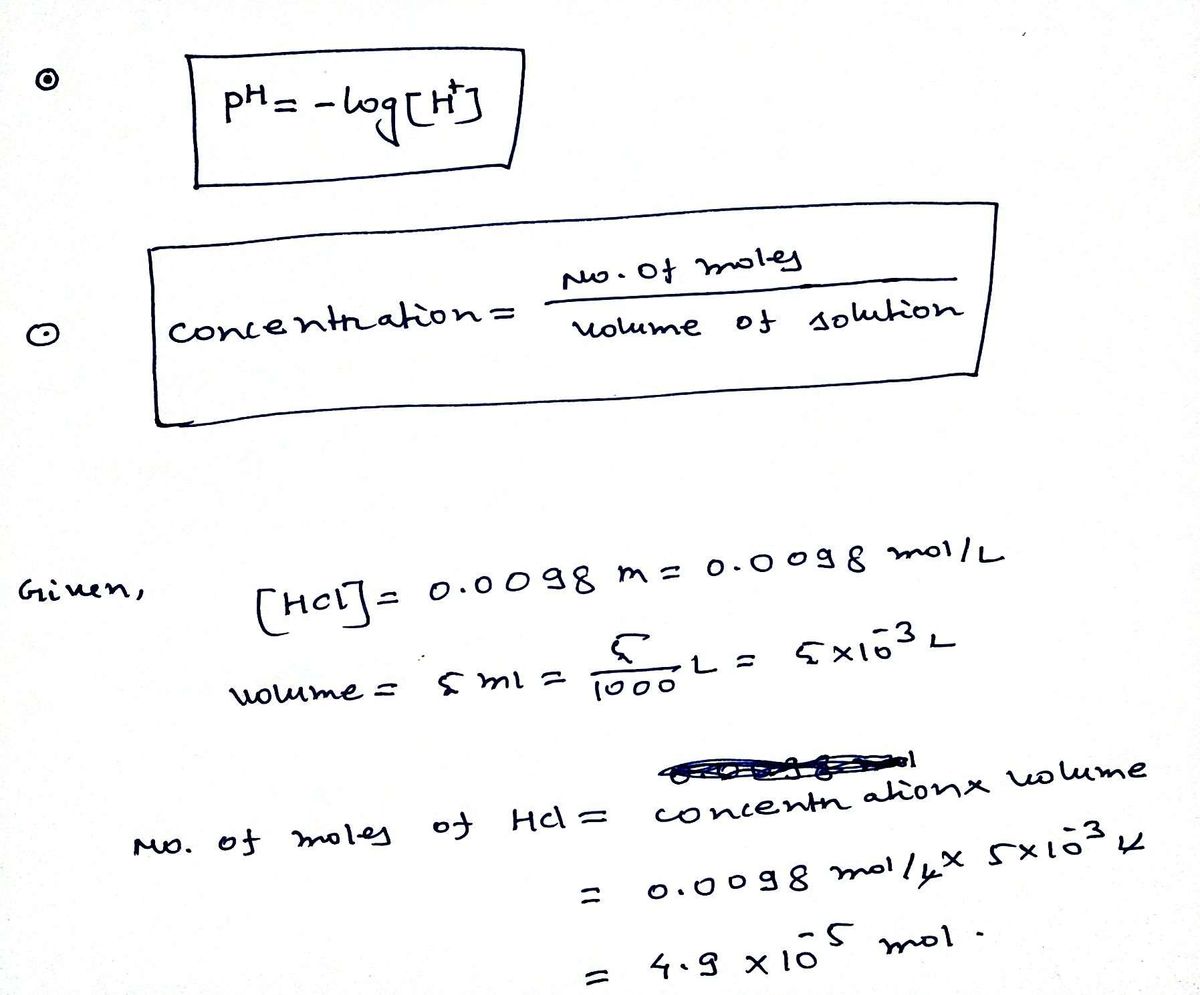 pH = -log[H⁺]
concentration = No. of moles / volume of solution
Given,
[HCl] = 0.0098 m = 0.0098 mol/L
volume = 5 ml = 5/1000 L = 5×10⁻³ L
No. of moles of HCl = concentration × volume
= 0.0098 mol/L × 5×10⁻³ L
= 4.9 × 10⁻⁵ mol.